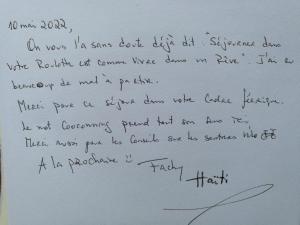 10 mai 2022,
On vous l'a sans doute déjà dit. "Séjourner dans
votre Roulotte est comme vivre dans un Rêve". J'ai eu
beaucoup de mal à partir.
Merci pour ce séjour dans votre Cadre féérique.
Le mot Cocooning prend tout son sens ici.
Merci aussi pour les Conseils sur les sentiers vélo
A la prochaine
Haïti